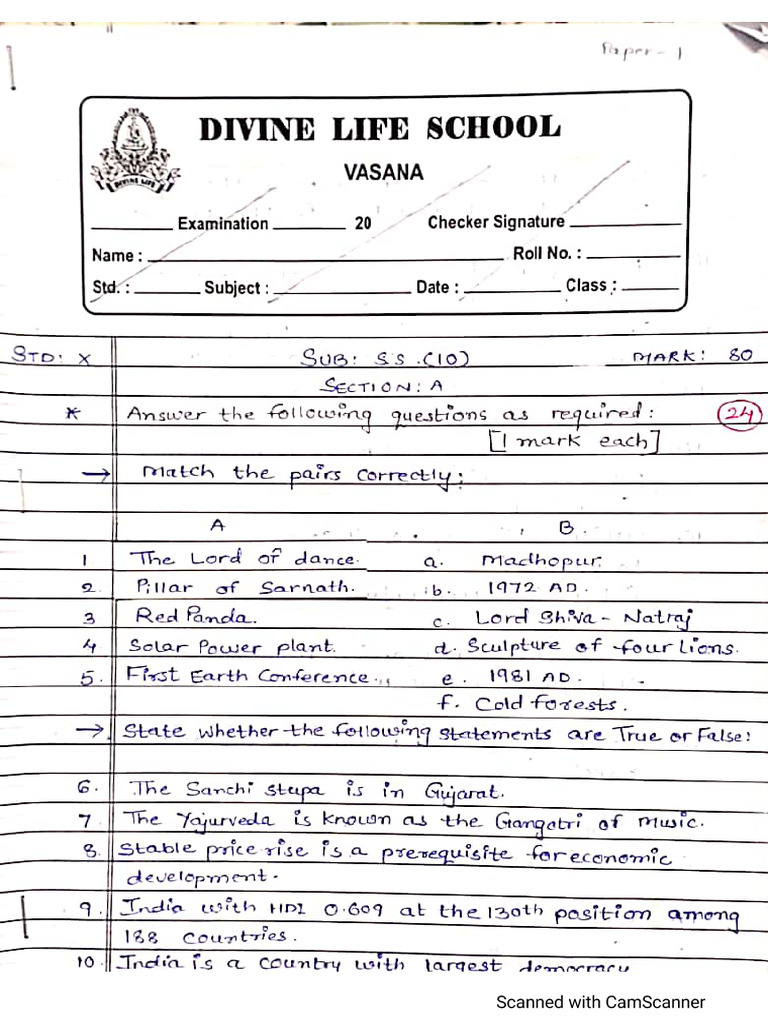 Paper - 1
DIVINE LIFE SCHOOL
DIVINE LIFE
VASANA
Examination 20 Checker Signature
Name : Roll No. :
Std. : Subject : Date : Class :
STD: X SUB: S.S. (10) MARK: 80
SECTION: A
* Answer the following questions as required: 24
[1 mark each]
→ Match the pairs correctly:
A B.
1 The Lord of dance. a. Madhopur.
2. Pillar of Sarnath. b. 1972 AD.
3 Red Panda. c. Lord Shiva - Natraj
4 Solar Power plant. d. Sculpture of four Lions.
5. First Earth Conference. e. 1981 AD.
f. Cold forests.
→ State whether the following statements are True or False:
6. The Sanchi stupa is in Gujarat.
7 The Yajurveda is known as the Gangotri of music.
8. Stable price rise is a prerequisite for economic
development.
9. India with HDI 0.609 at the 130th position among
188 countries.
10. India is a country with largest democracy
Scanned with CamScanner